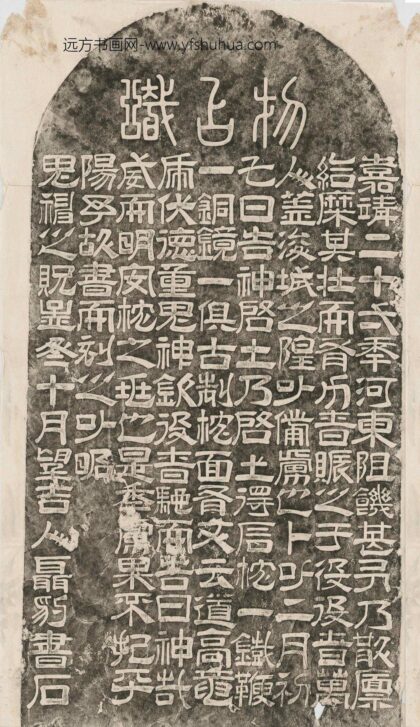 远方书画网-www.yfshuhua.com
物識
嘉靖二十弌季河東阻饑甚予乃散廩
給糜其壮而有力者賑之于役役者萬
人蓋浚城之隍以備虜也卜以二月初
乙日告神啓土乃啓土得石枕一鐵鞭
一銅鏡一俱古制枕面有文云道高龍
虎伏德重鬼神欽役者馳而告曰神哉
威而明安枕之也是秊虜果不犯平
陽予故書而刻之以昭
鬼神之貺冬十月望吉人聶豹書石